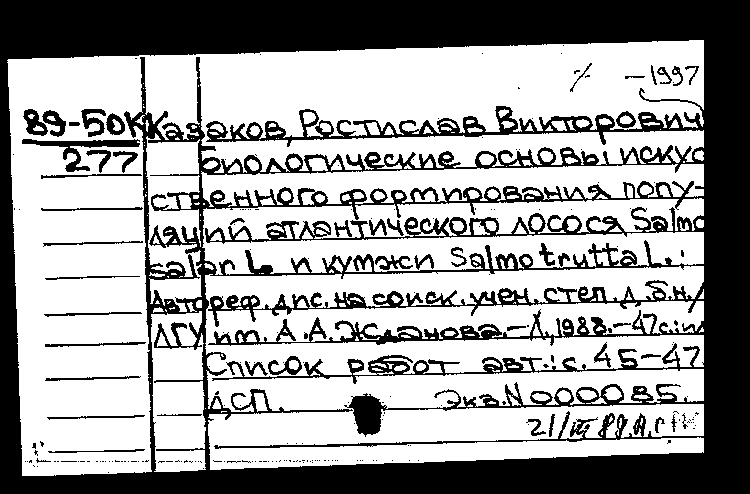 – 1997
89-50К Казаков, Ростислав Викторович
277 биологические основы искус
ственного формирования попу-
ляций атлантического лосося Salmo
salar L. и кумжи Salmo trutta L.:
Автореф. дис. на соиск. учен. степ. д.б.н/
ЛГУ им. А.А. Жданова.–Л., 1988.–47с.: ил
Список работ авт.: с. 45–47.
ДСП. Экз. N 000085.
21/III 89.